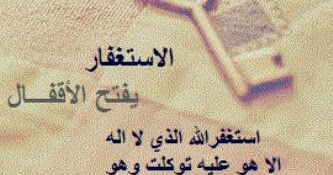 الاستغفار
يفتح الأقفـــال
استغفرالله الذي لا اله
الا هو عليه توكلت وهو